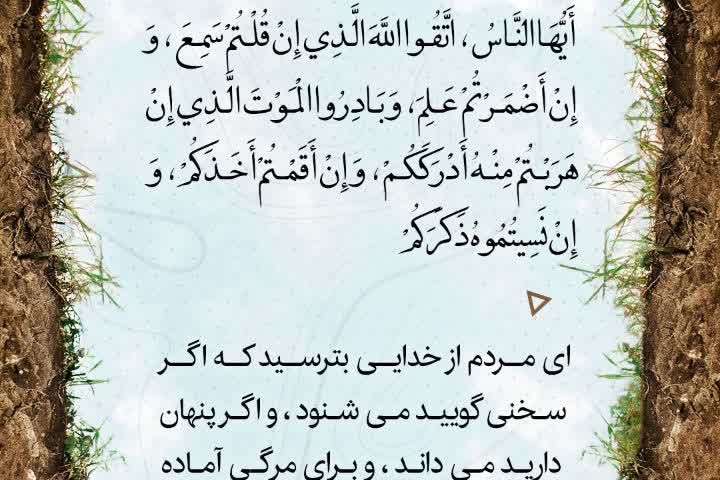 أَيُّهَا النَّاسُ، اتَّقُوا اللَّهَ الَّذِي إِنْ قُلْتُمْ سَمِعَ، وَ
إِنْ أَضْمَرْتُمْ عَلِمَ، وَ بَادِرُوا الْمَوْتَ الَّذِي إِنْ
هَرَبْتُمْ مِنْهُ أَدْرَكَكُمْ، وَ إِنْ أَقَمْتُمْ أَخَذَكُمْ، وَ
إِنْ نَسِيتُمُوهُ ذَكَرَكُمْ
ای مردم از خدایی بترسید که اگر
سخنی گویید می شنود، و اگر پنهان
دارید می داند، و برای مرگی آماده